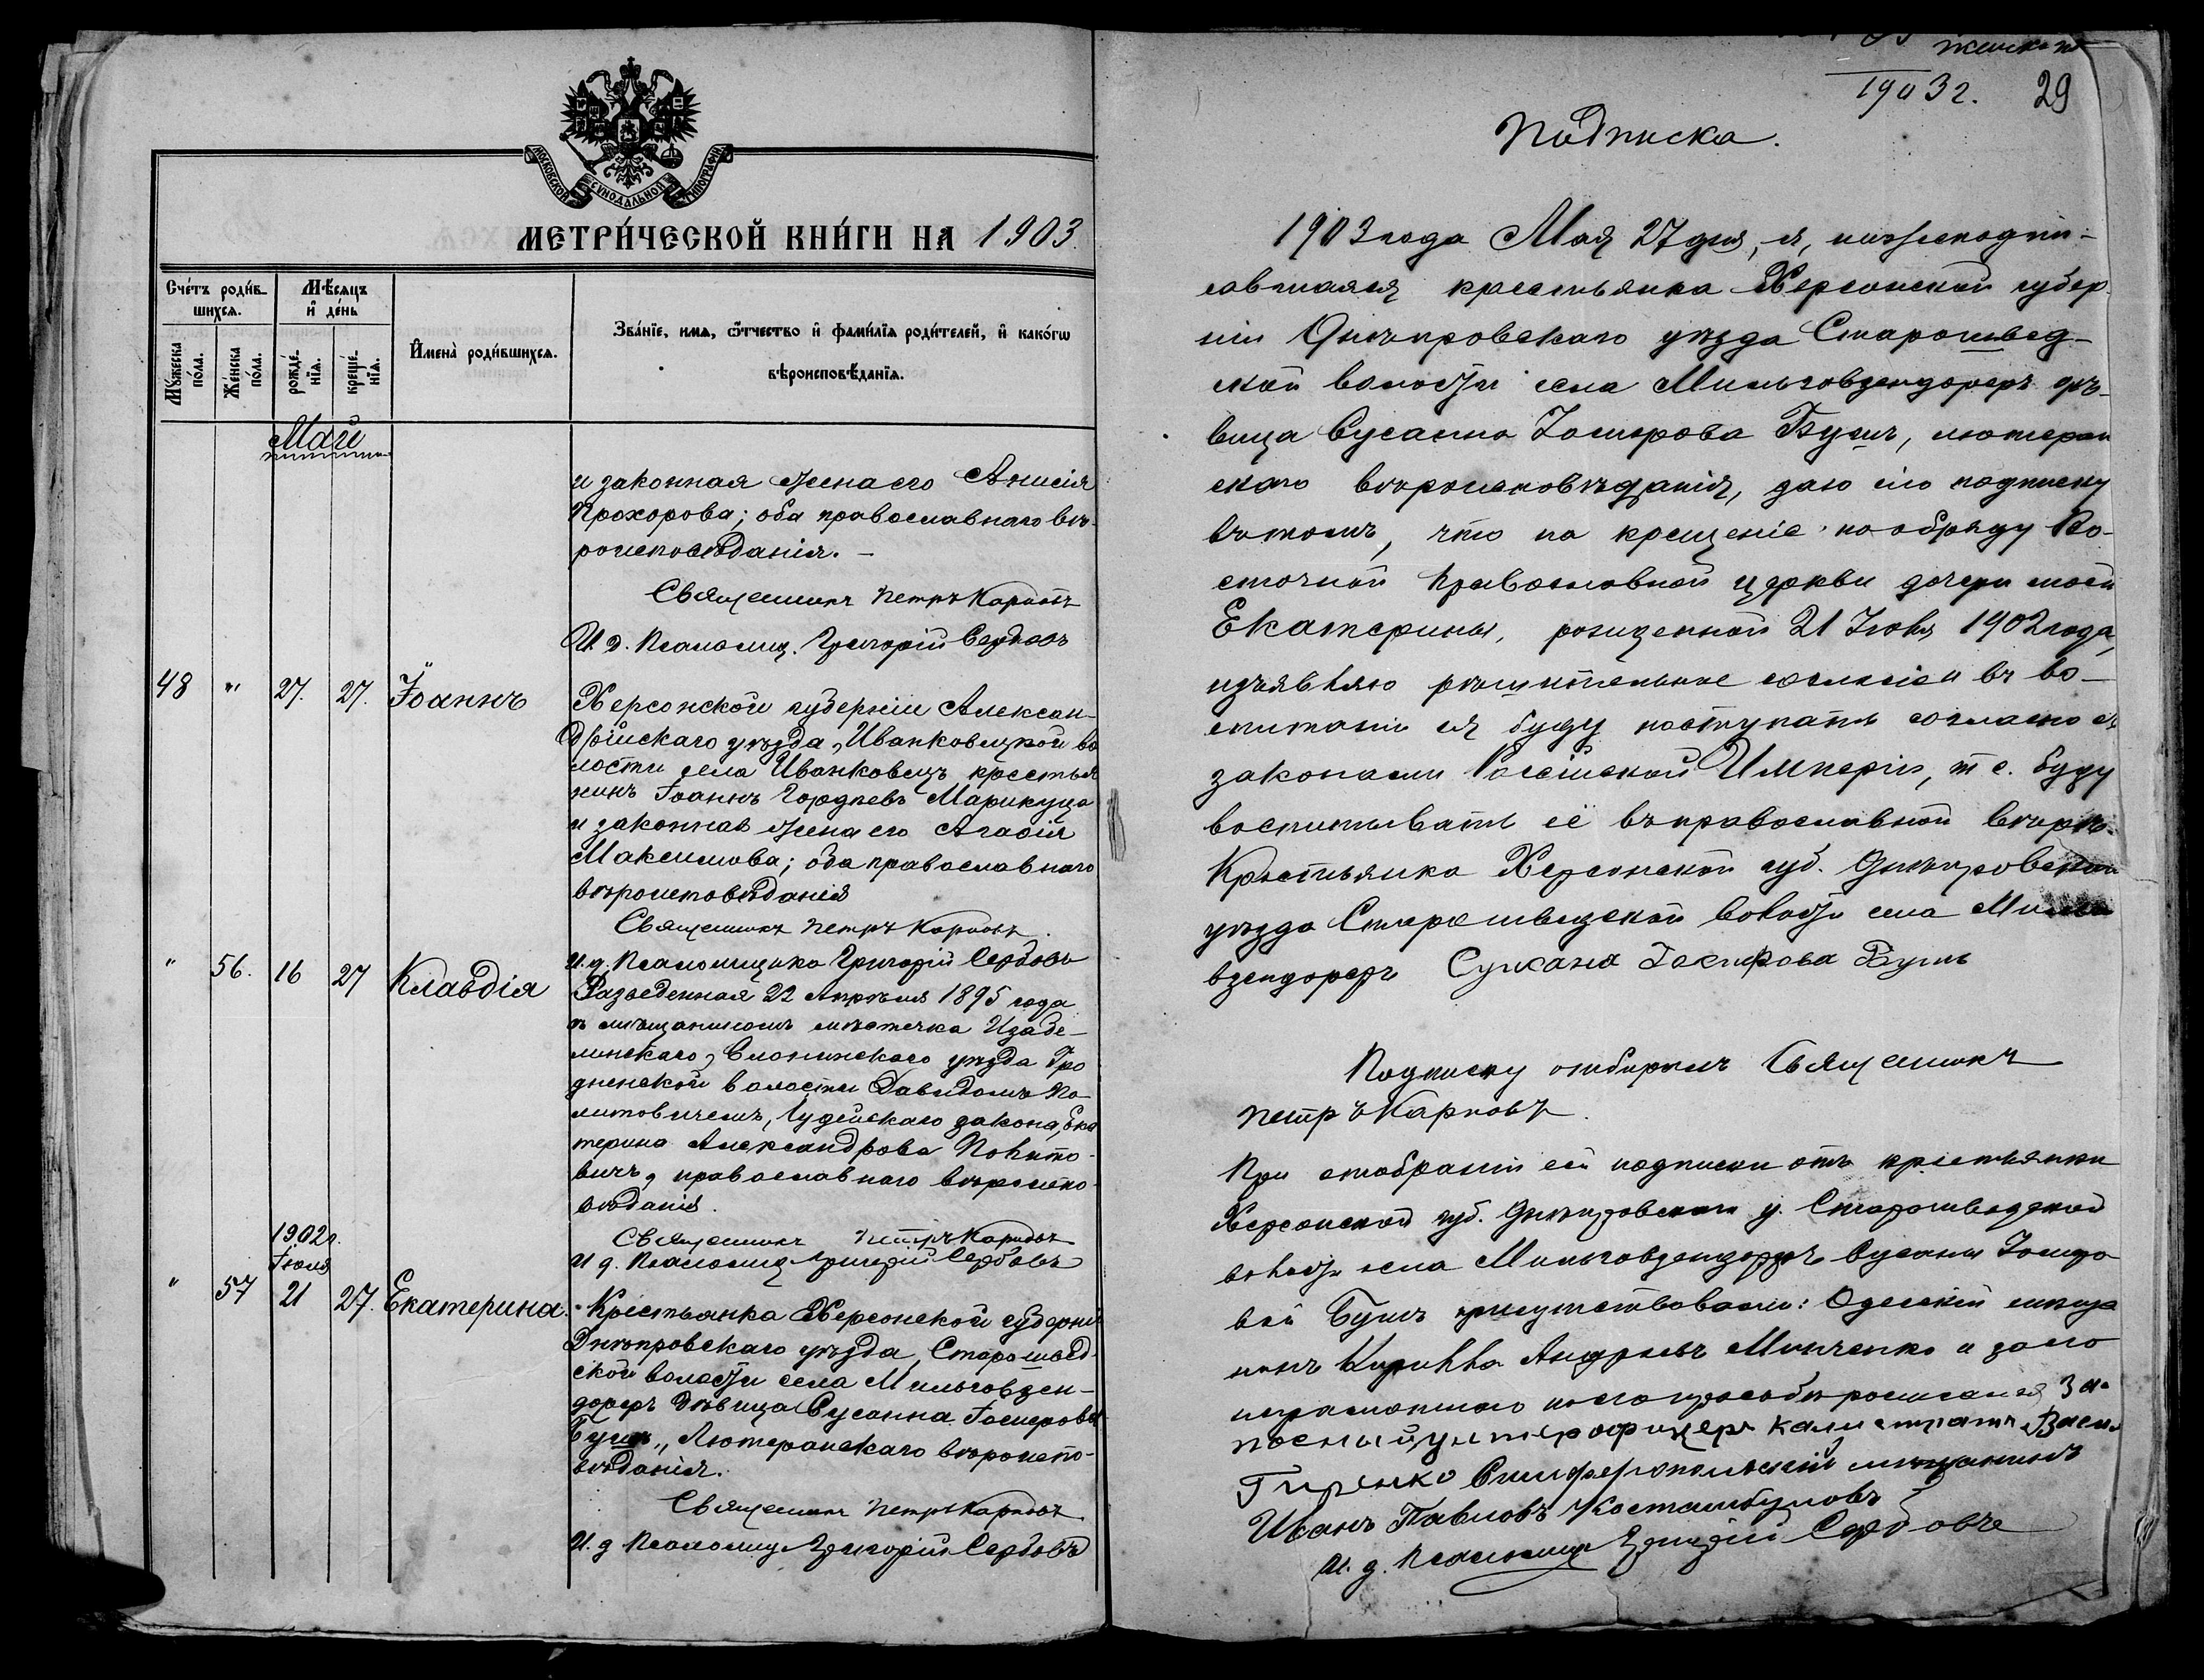 МОСКОВСКОЙ СѴНОДАЛЬНОЙ ТИПОГРАФІИ
МЕТРИ́ЧЕСКОЙ КНИ́ГИ НА 1903.
Сче́тъ роди́в-
шихся.
Мѣ́сяцъ
и҆ де́нь
И҆мена̀ роди́вшихся.
Зва́нїе, имя, ѻ҆́тчество и҆ фами́лїя роди́телей, и҆ како́гѡ
вѣроисповѣ́данїя.
Му́жеска
по́ла.
Же́нска
по́ла.
рожде́-
нїя.
креще́-
нїя.
Май
и законная жена его Анисія
Прохорова; оба православнаго вѣ-
роисповѣданія. —
Священникъ Петръ Карповъ
И. д. Псаломщ. Григорій Сербовъ
48 " 27. 27. Іоаннъ
Херсонской губерніи Алексан-
дрійскаго уѣзда, Иванковецкой во
лости села Иванковецъ крестья
нинъ Іоаннъ Гордѣевъ Марикуца
и законная жена его Агафія
Максимова; оба православнаго
вѣроисповѣданія
Священникъ Петръ Карповъ.
И. д. Псаломщика Григорій Сербовъ
" 56. 16 27 Клавдія
Разведенная 22 Апрѣля 1895 года
съ мѣщаниномъ мѣстечка Изабе-
линскаго, Слонимскаго уѣзда Гро
дненской волости Давидомъ По-
литовичемъ, Іудейскаго закона, Ека
терина Александрова Полито-
вичъ, православнаго вѣроиспо-
вѣданія.
Священникъ Петръ Карповъ
И д. Псаломщ Григорій Сербовъ
1902 г.
Іюля
" 57 21 27. Екатерина.
Крестьянка Херсонской губерніи
Днѣпровскаго уѣзда, Старошвед-
ской волости села Мильговзен-
дорфъ дѣвица Сусанна Іосифова
Бушъ, Лютеранскаго вѣроиспо-
вѣданія.
Священникъ Петръ Карповъ
И. д Псаломщ Григорій Сербовъ
женск. п.
1903 г. 29
Подписка.
1903 года Мая 27 дня, я, нижеподпи-
савшаяся крестьянка Херсонской губер
ніи Днѣпровскаго уѣзда Старошвед-
ской волости села Мильговзендорфъ дѣ-
вица Сусанна Іосифова Бушъ, лютеран
скаго вѣроисповѣданія, даю сію подписку
въ томъ, что на крещеніе по обряду Во-
сточной Православной церкви дочери моей
Екатерины, рожденной 21 Іюля 1902 года,
изъявляю рѣшительное согласіе и въ во-
спитаніи ея буду поступать согласно съ
законами Россійской Имперіи, т е. буду
воспитывать её въ православной вѣрѣ.
Крестьянка Херсонской губ. Днѣпровскаго
уѣзда Старошведской волости села Мильго
взендорфъ Сусана Іосифова Бушъ
Подписку отбиралъ Священникъ
Петръ Карповъ.
При отобраніи сей подписки отъ крестьянки
Херсонской губ. Днѣпровскаго у. Старошведской
волости села Мильговзендорфъ Сусанны Іосифо
вой Бушъ присутствовали: Одесскій мѣща
нинъ Кирилла Андреевъ Минченко а за его
неграмотностью по его просьбѣ росписался За-
пасный унтеръ офицеръ Калистратъ Васил.
Гиренко Симферопольскій мѣщанинъ
Иванъ Павловъ
И. д. Псаломщ Григорій Сербовъ